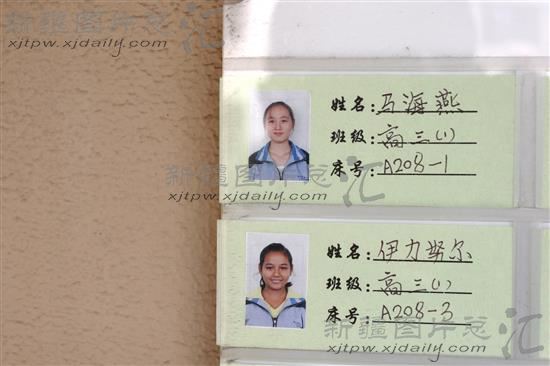 新疆图片总汇
xjtpw.xjdaily.com
姓名:马海燕
班级:高三(1)
床号:A208-1
新疆图片总汇
xjtpw.xjdaily.com
姓名:伊力努尔
班级:高三(1)
床号:A208-3
新疆图片总汇
xjtpw.xjdaily.com